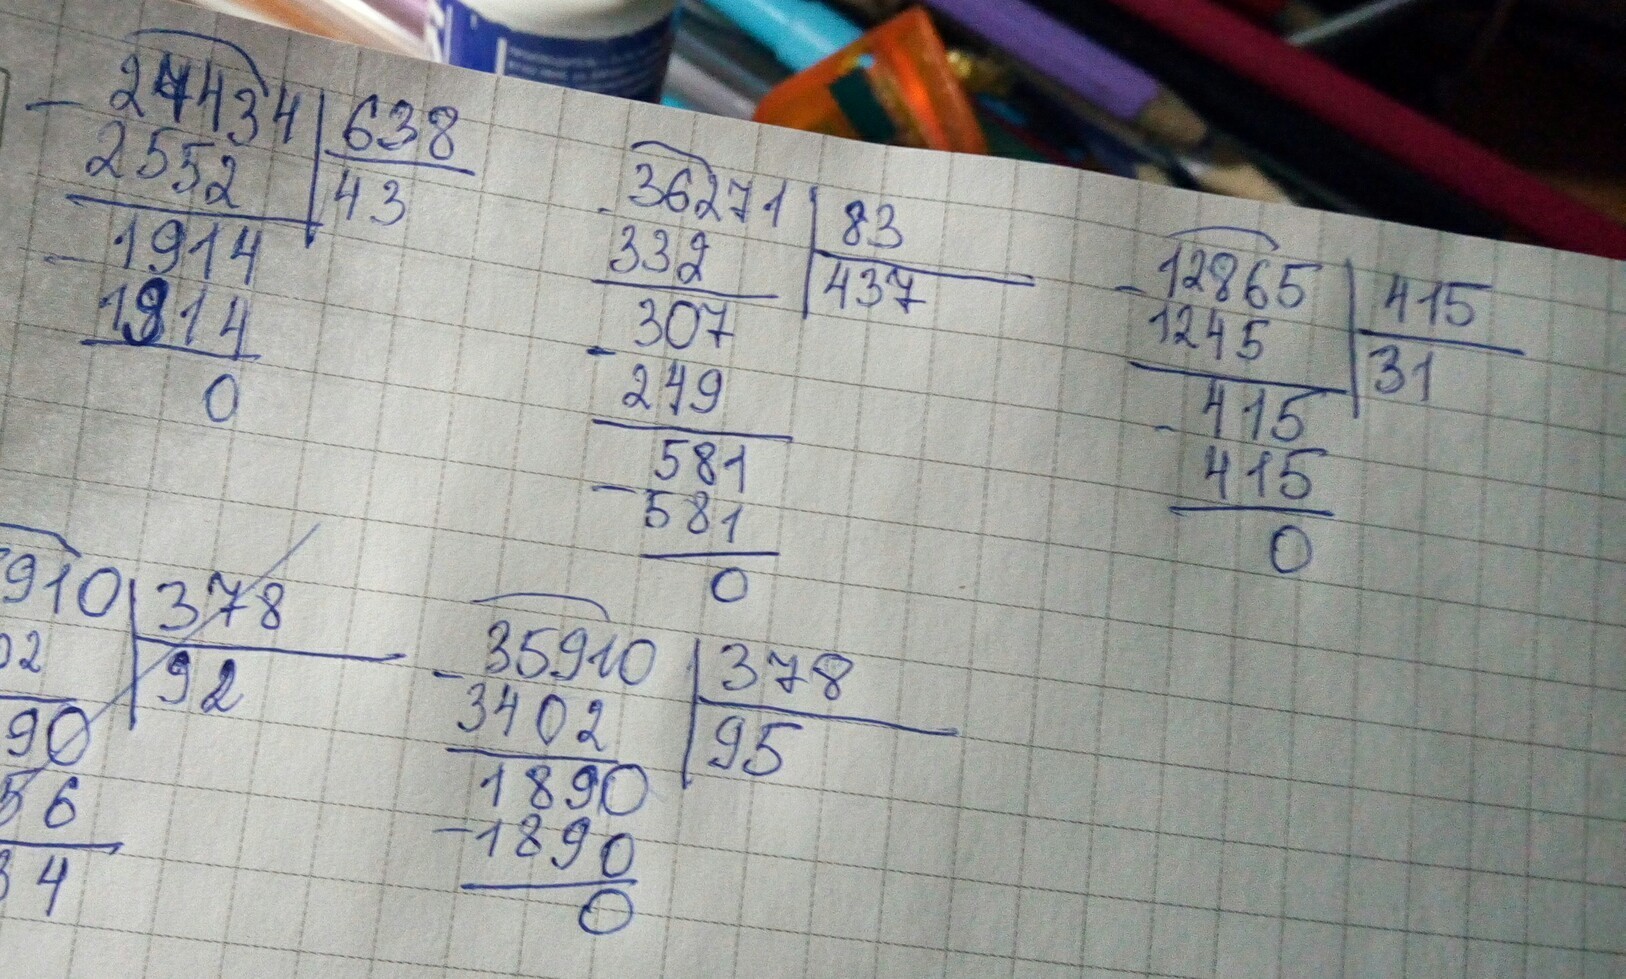 - 27434 | 638
2552 | 43
- 1914
1914
0
- 36271 | 83
332 | 437
307
- 249
581
- 581
0
- 12865 | 415
1245 | 31
- 415
415
0
910 | 378
02 | 92
90
56
34
- 35910 | 378
3402 | 95
1890
- 1890
0